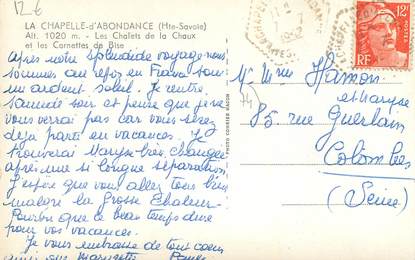 12€
LA CHAPELLE-d'ABONDANCE (Hte-Savoie)
Alt. 1020 m. - Les Chalets de la Chaux
et les Cornettes de Bise
Après notre splendide voyage nous
sommes au repos en sous
un ardent soleil. Je rentre
samedi soir et pense que je ne
vous verrai pas car vous serez
déjà parti en vacances. Je
trouverai Maryse bien changée
après une si longue séparation
J'espère que vous allez tous bien
malgré la grosse chaleur
que le beau temps dure
pour vos vacances.
Je vous embrasse de tout coeur
ainsi que
PHOTO COMBIER MACON
CHAPELLE D'ABONDANCE
1952
12F
RF
74
Mr Mme Hamon
et Maryse
85 rue Guerlain
Colombes
(Seine)